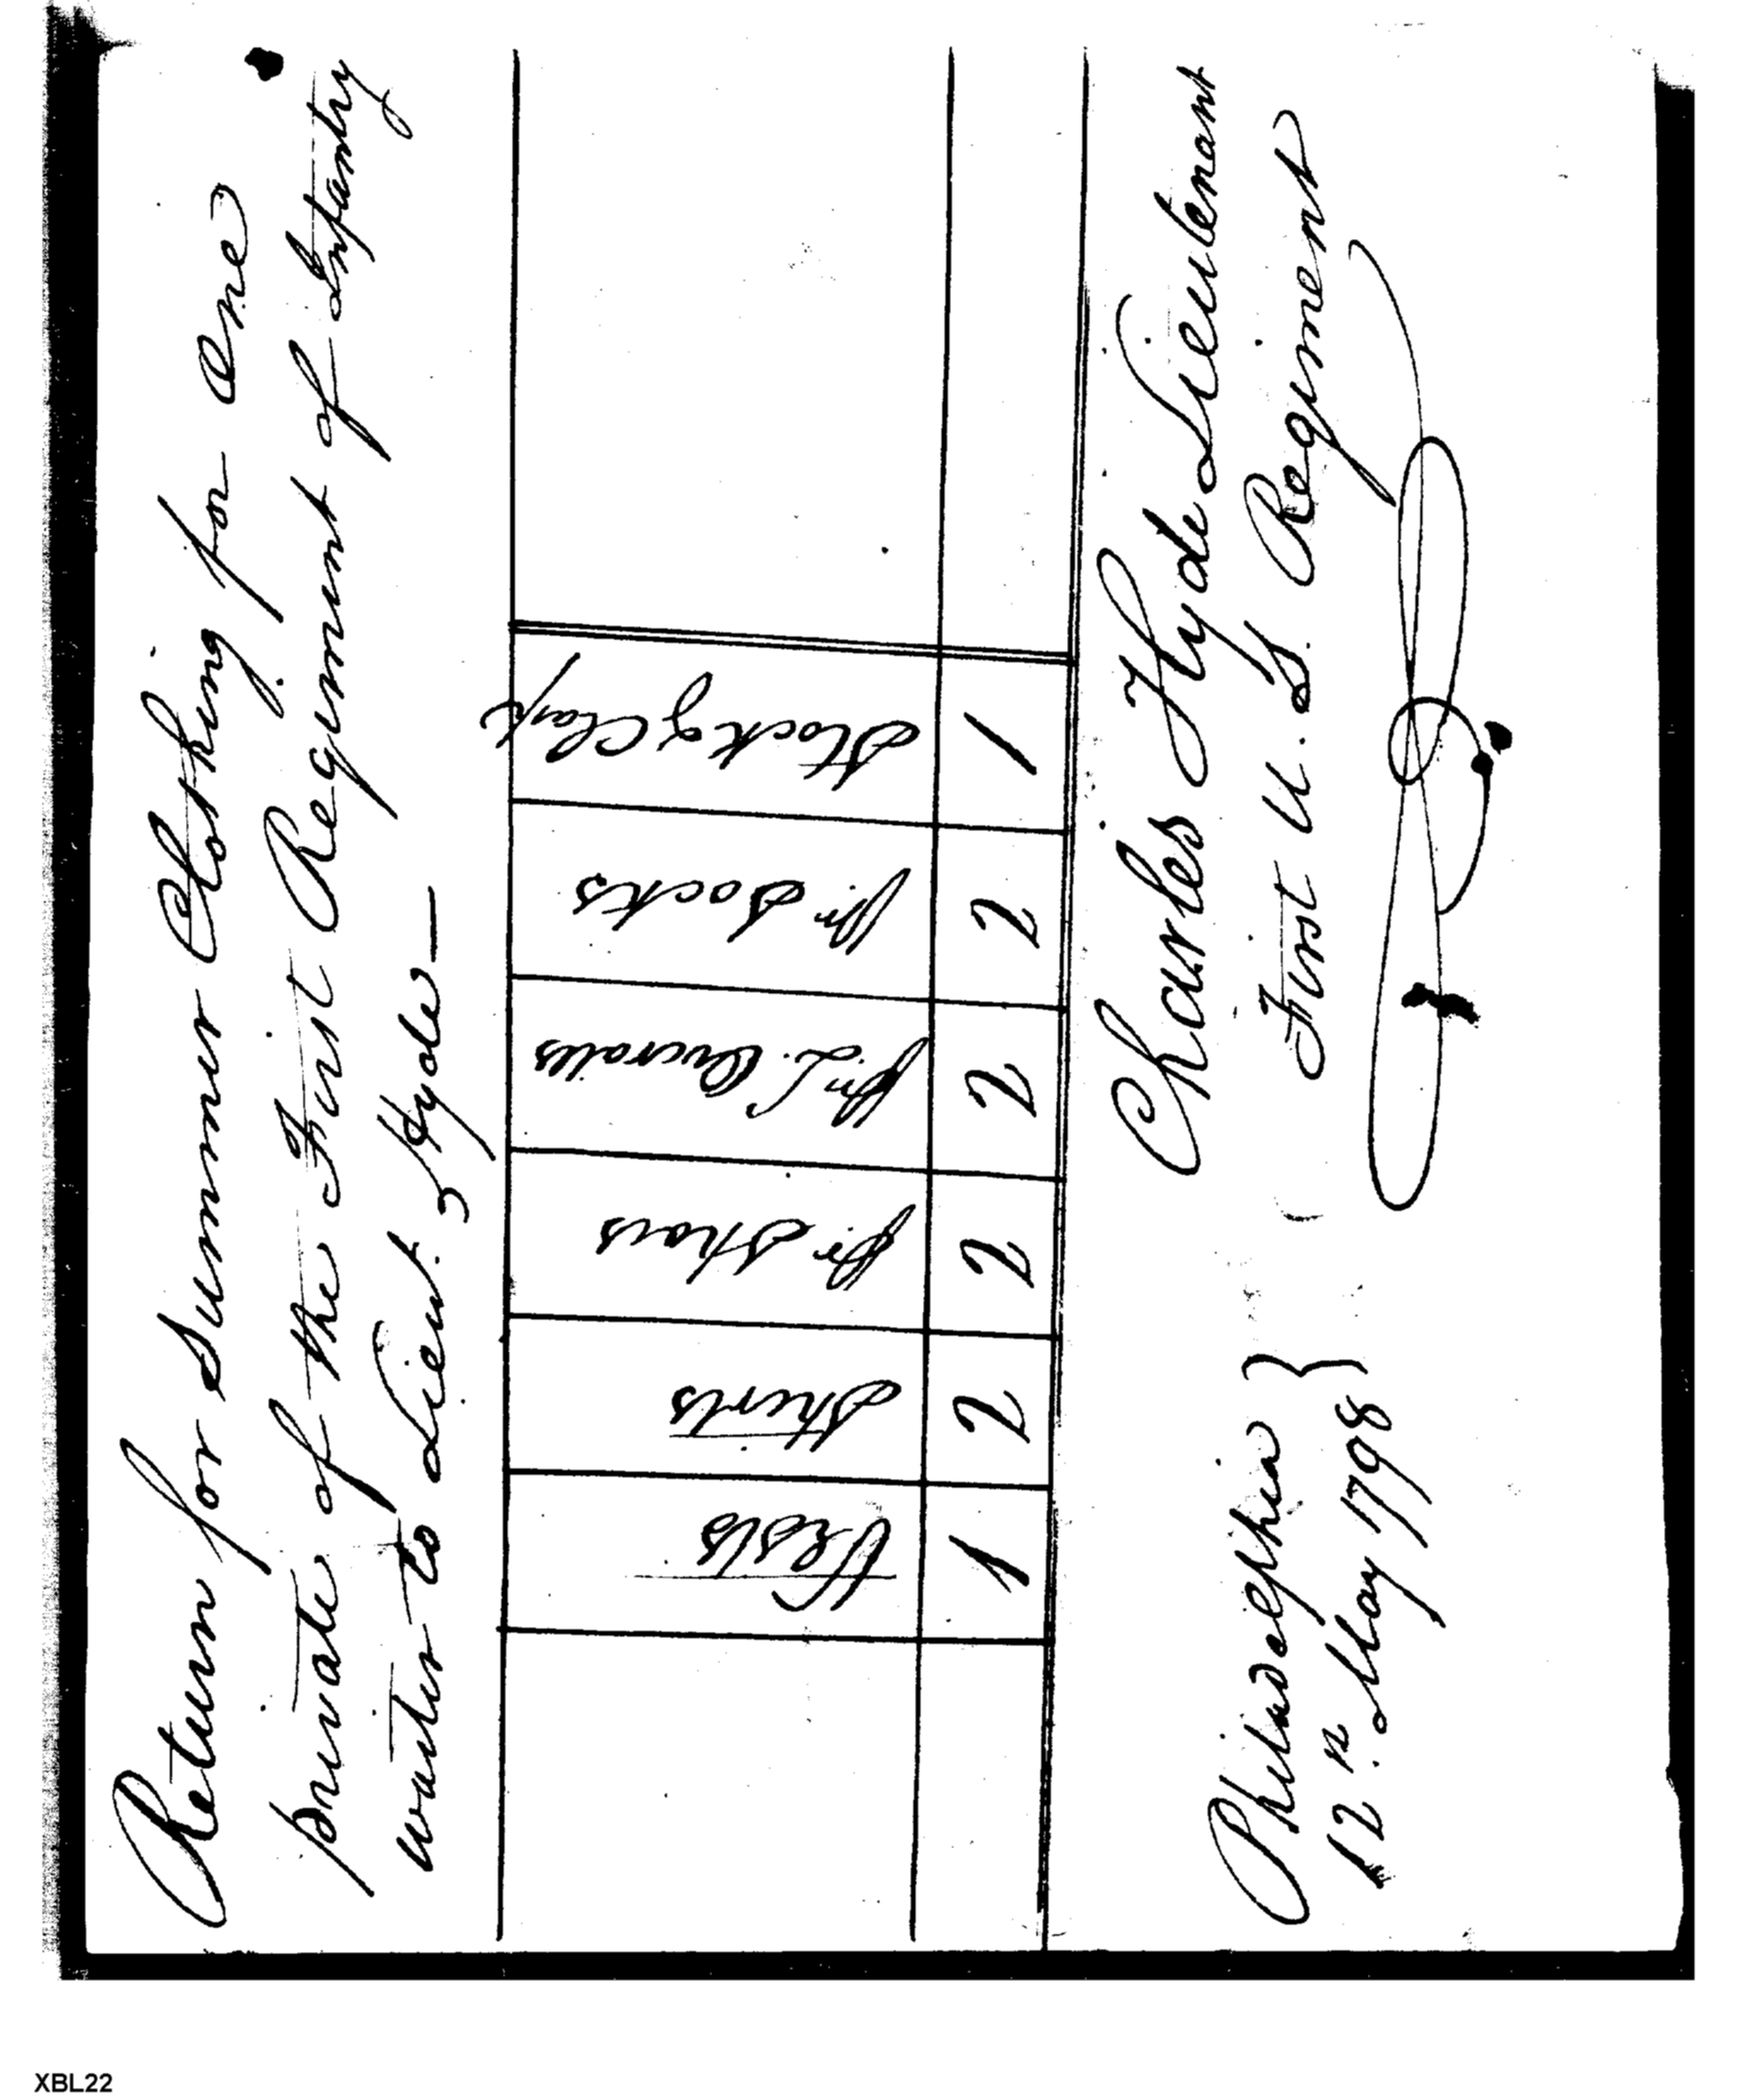 Return for Summer Clothing for one
private of the First Regiment of Infantry
waiter to Lieut. Hyde—
Vests
Shirts
pr Shoes
pr L. Overalls
pr Socks
Stock & Clasp
1
2
2
2
2
1
Charles Hyde Lieutenant
First U. S. Regiment
Philadelphia }
12th May 1798
XBL22